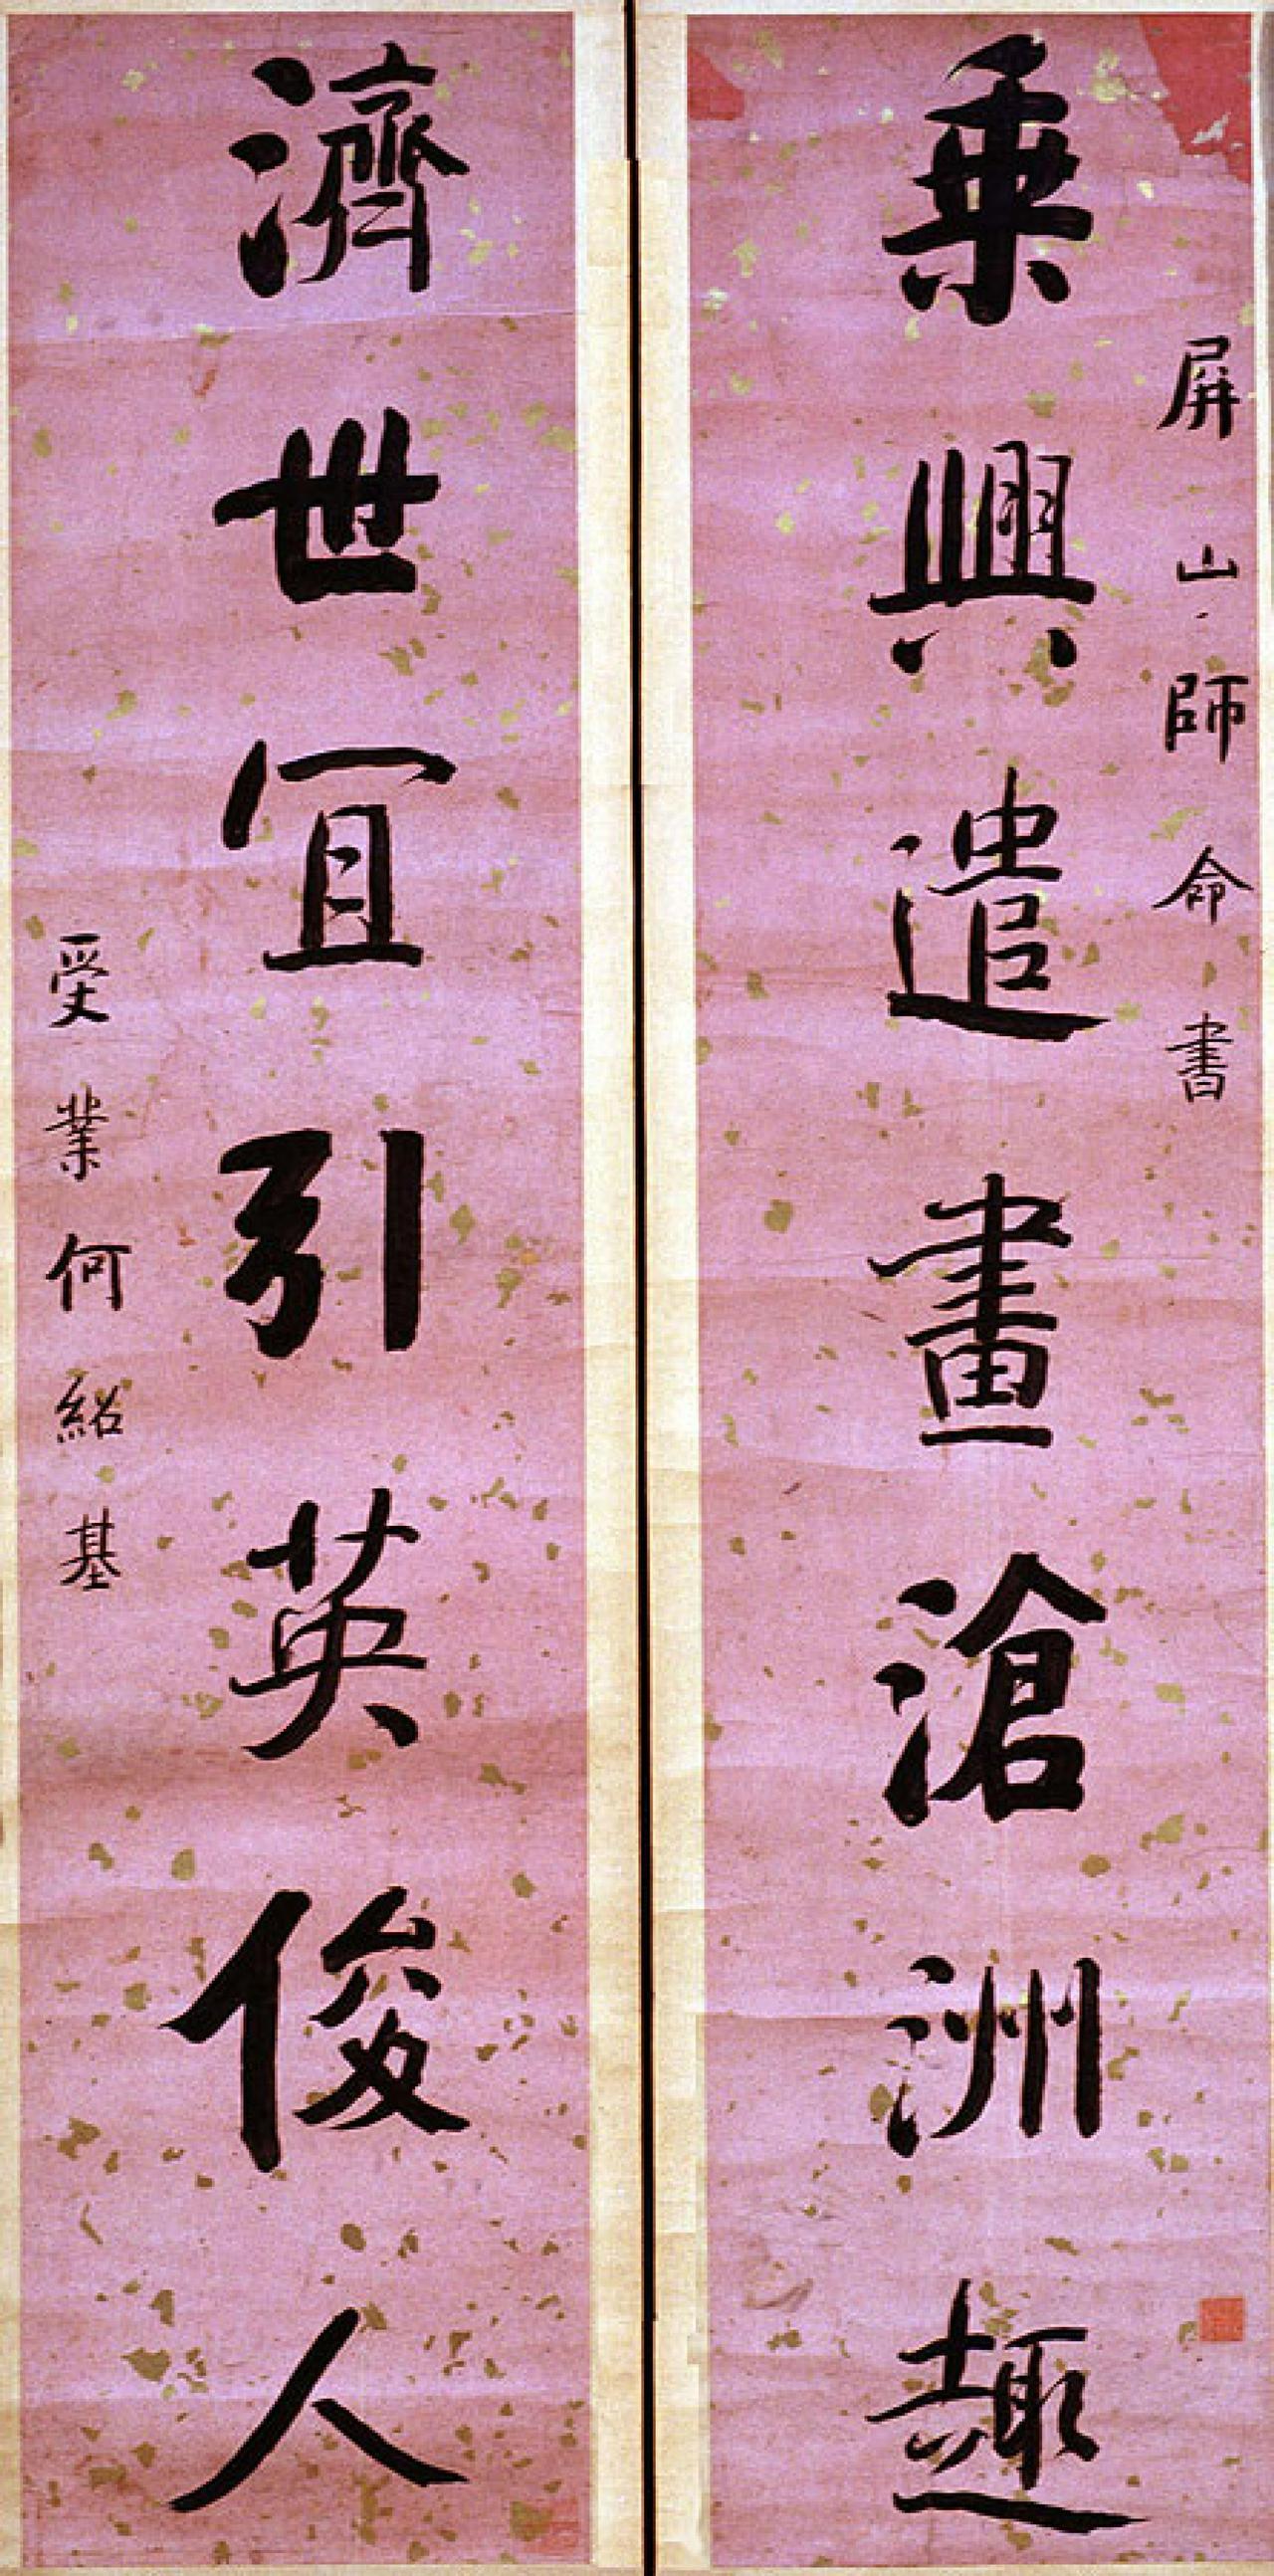 屏山師命書
乘興遣畫滄洲趣
濟世宜引英俊人
受業何紹基